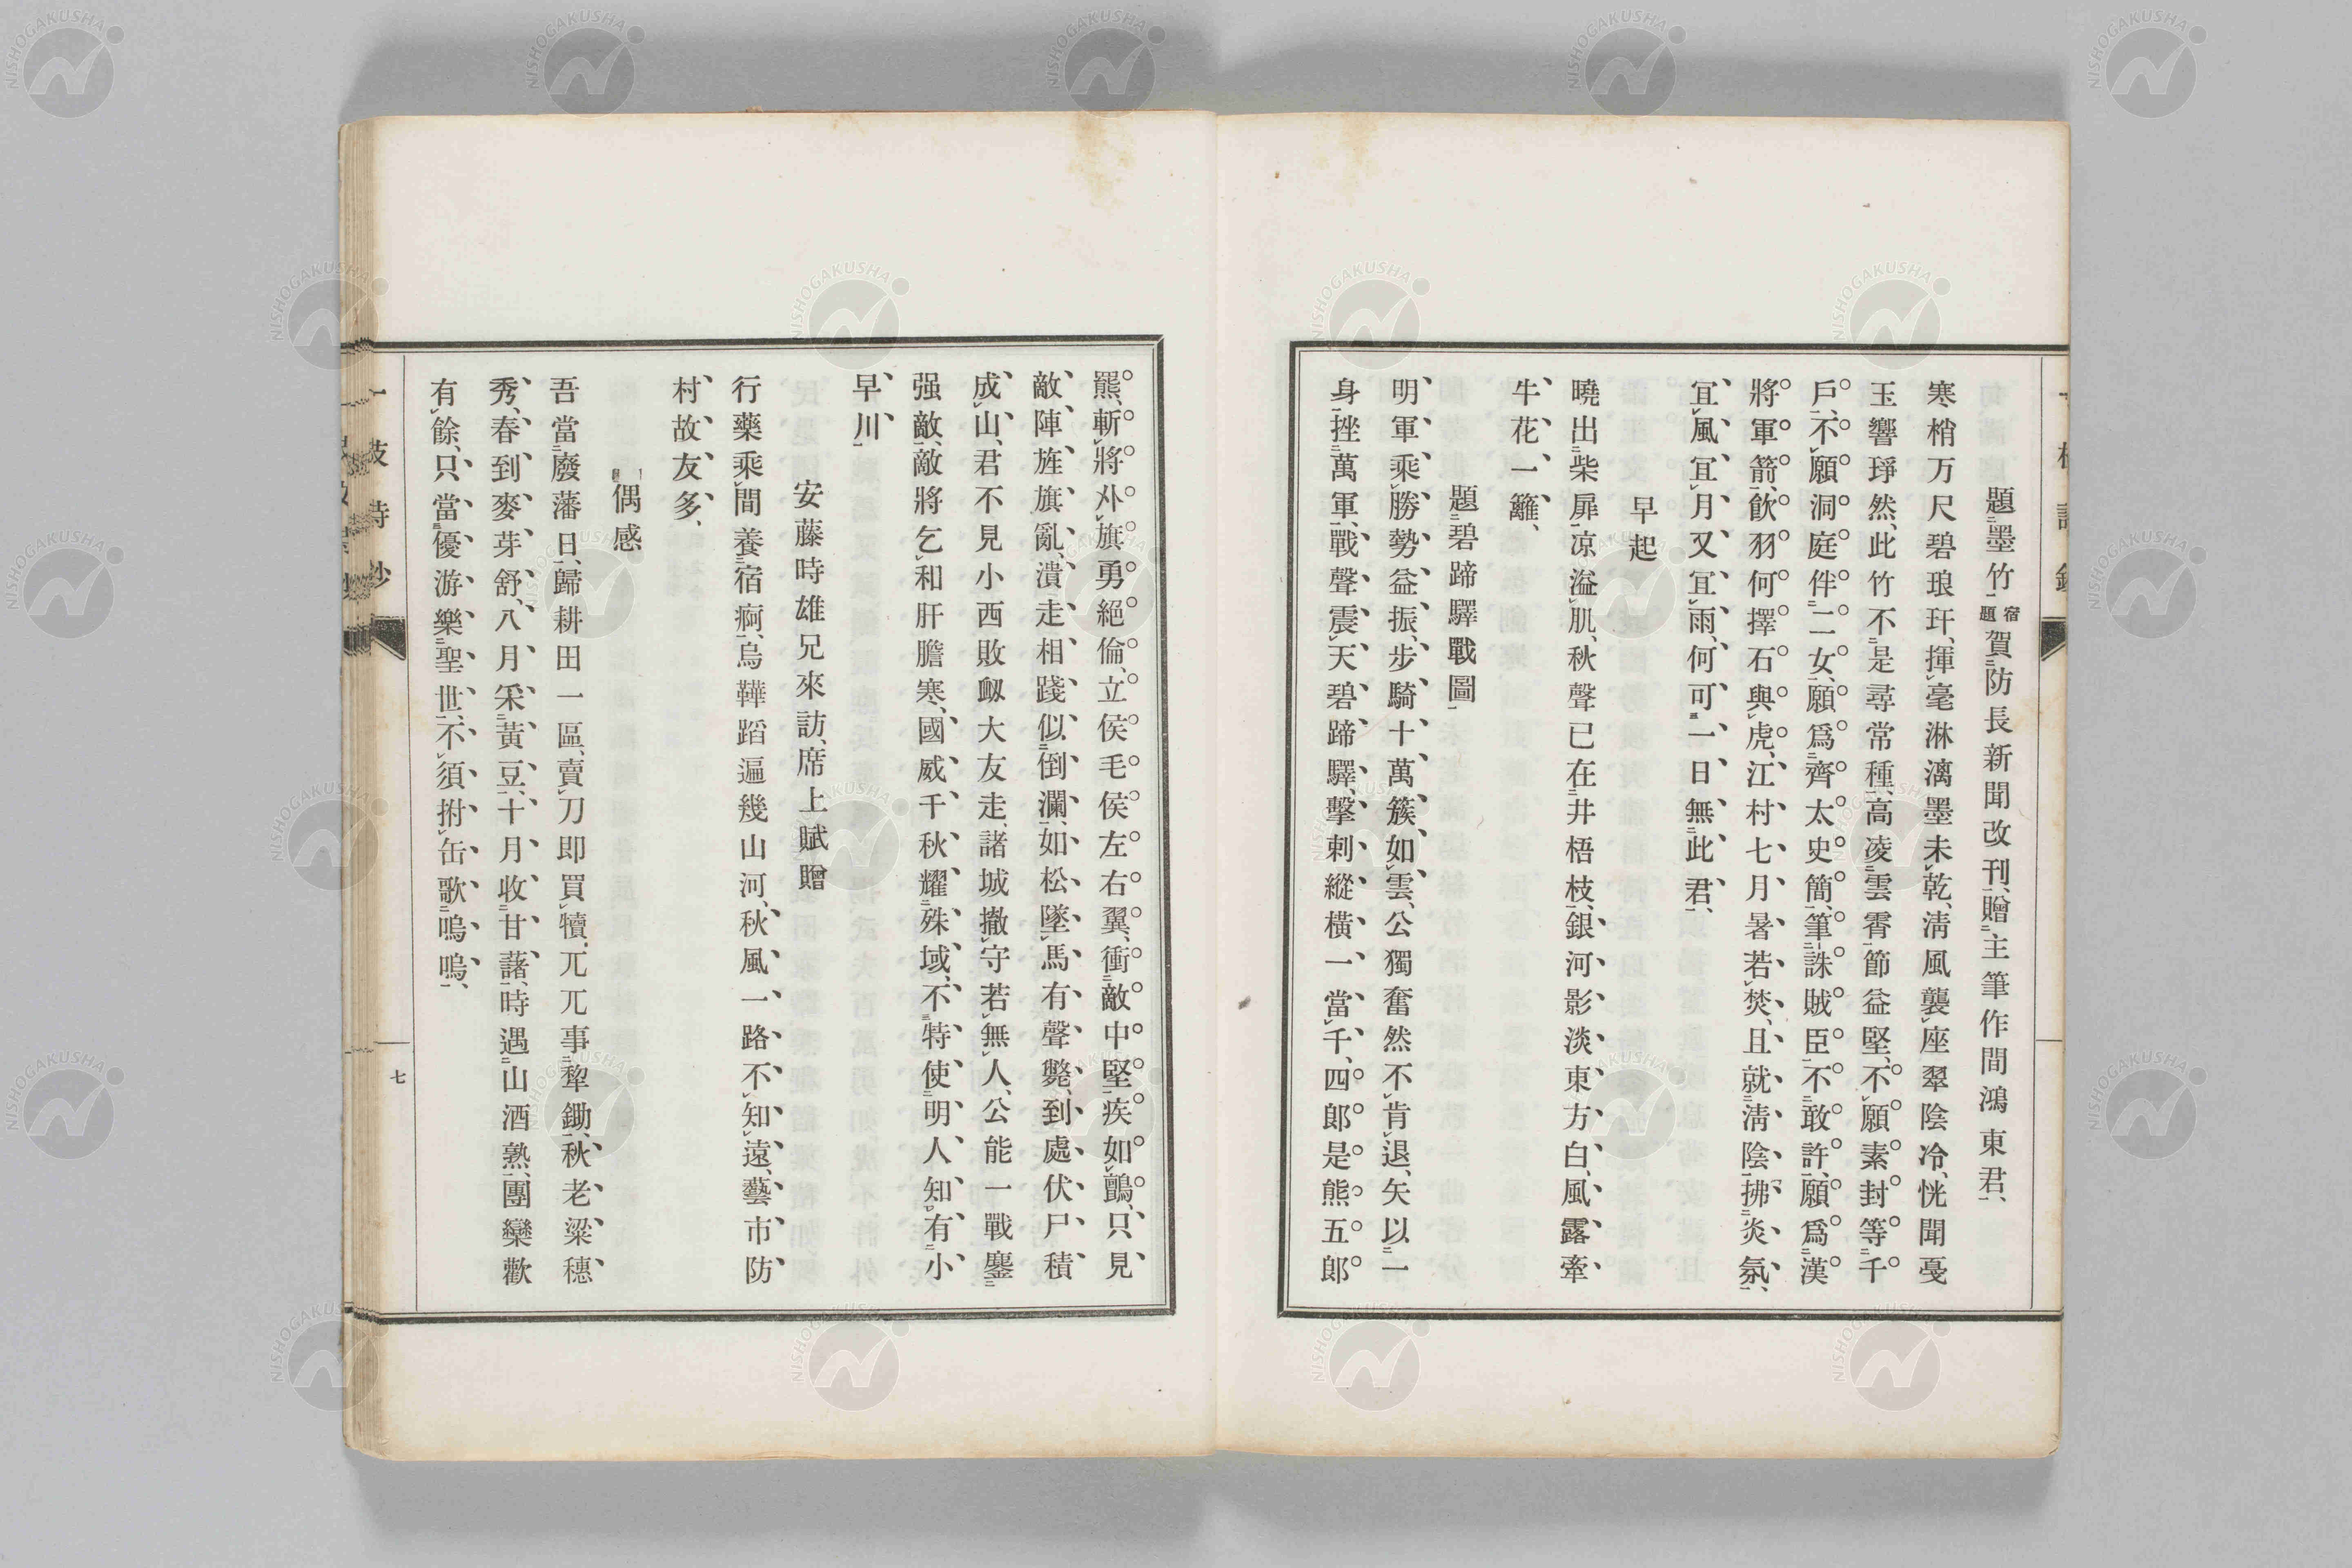 題墨竹宿題賀防長新聞改刊、贈主筆作間鴻東君、
寒梢万尺碧琅玕、揮毫淋漓墨未乾、淸風襲座翠陰冷、恍聞戛
玉響琤然、此竹不是尋常種、高凌雲霄節益堅、不願素封等千
戶、不願洞庭伴二女、願爲齊太史簡、筆誅賊臣不敢許、願爲漢
將軍箭、飮羽何擇石與虎、江村七月暑若焚、且就淸陰拂炎氛、
宜風宜月又宜雨、何可一日無此君、
早起
曉出柴扉凉溢肌、秋聲已在井梧枝、銀河影淡東方白、風露牽
牛花一籬、
題碧蹄驛戰圖
明軍乘勝勢益振、步騎十萬簇如雲、公獨奮然不肯退、矢以一
身挫萬軍、戰聲震天碧蹄驛、擊刺縱橫一當千、四郞是熊五郞
羆、斬將外旗勇絕倫、立侯毛侯左右翼、衝敵中堅疾如鸇、只見
敵陣旌旗亂、潰走相踐似倒瀾、如松墜馬有聲斃、到處伏尸積
成山、君不見小西敗衂大友走、諸城撤守若無人、公能一戰鏖
强敵、敵將乞和肝膽寒、國威千秋耀殊域、不特使明人知有小
早川
安藤時雄兄來訪、席上賦贈
行藥乘間養宿痾、烏鞾蹈遍幾山河、秋風一路不知遠、藝市防
村故友多、
偶感
吾當廢藩日、歸耕田一區、賣刀即買犢、兀兀事犂鋤、秋老粱穗
秀、春到麥芽舒、八月采黃豆、十月收甘藷、時遇山酒熟、團欒歡
有餘、只當優游樂聖世、不須拊缶歌嗚嗚、
七